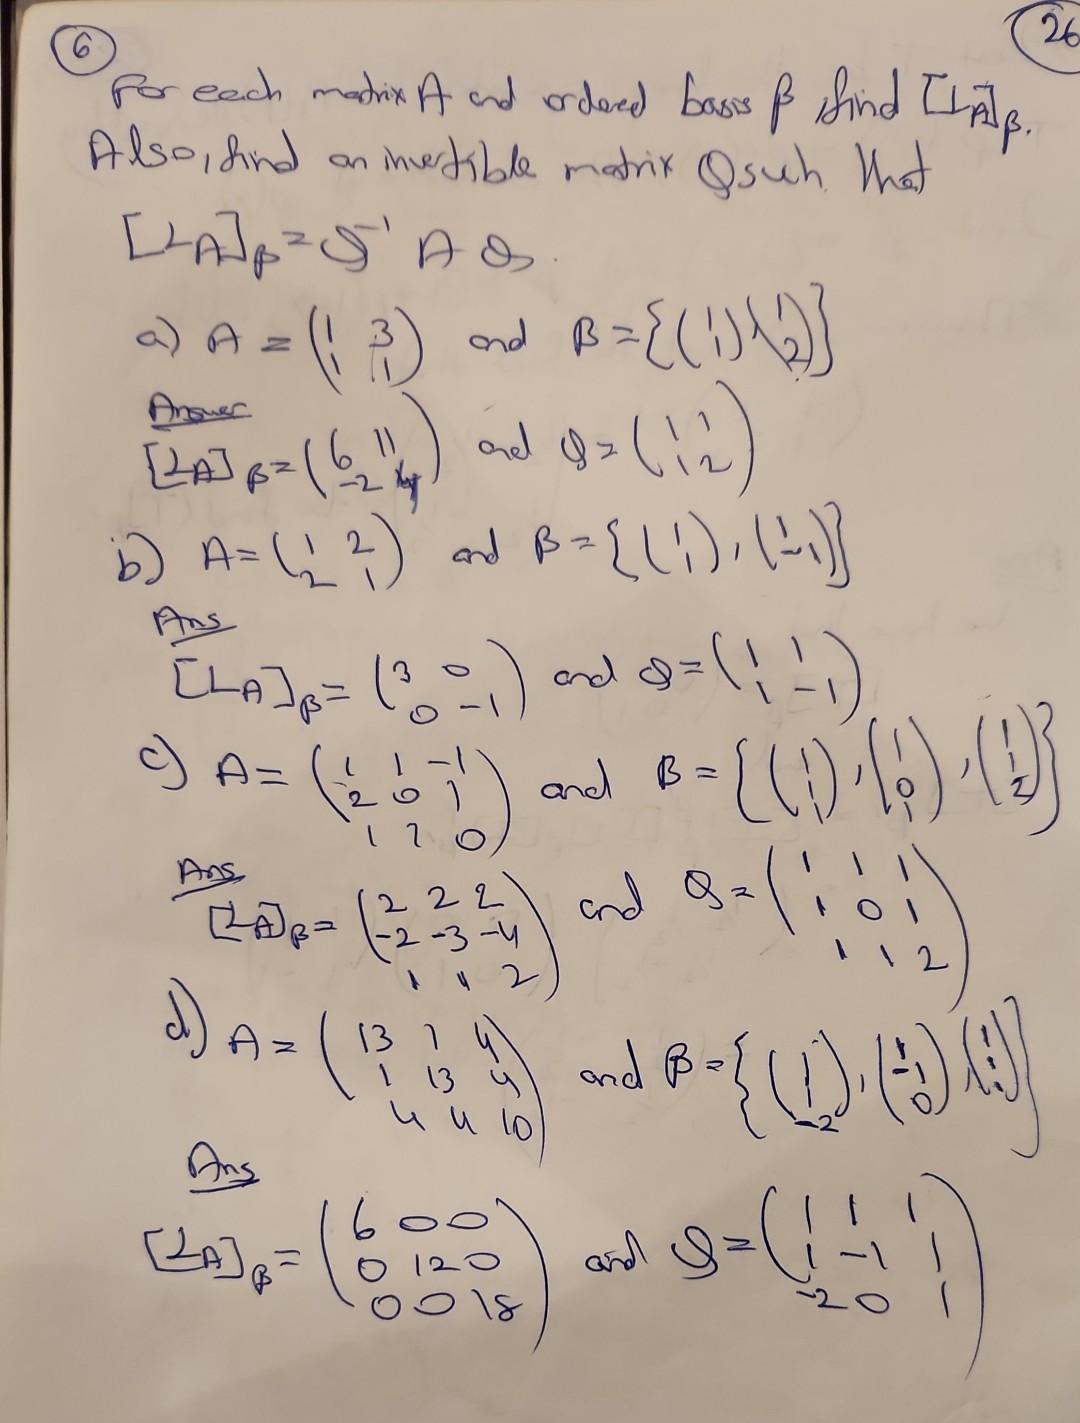 6
26
For each matrix A and ordered basis β, find [L_A]_β.
Also, find an invertible matrix Q such that
[L_A]_β = Q⁻¹ A Q.
a) A = (1 3; 1 1) and B = {(1; 1), (1; 2)}
Answer
[L_A]_β = (6 11; -2 -4) and Q = (1 1; 1 2)
b) A = (1 2; 2 1) and B = {(1; 1), (1; -1)}
Ans
[L_A]_β = (3 0; 0 -1) and Q = (1 1; 1 -1)
c) A = (1 1 -1; 2 0 1; 1 1 0) and B = {(1; 1; 1), (1; 0; 1), (1; 1; 2)}
Ans
[L_A]_β = (2 2 2; -2 -3 -4; 1 1 2) and Q = (1 1 1; 1 0 1; 1 1 2)
d) A = (13 1 4; 1 13 4; 4 4 10) and β = {(1; 1; -2), (1; -1; 0), (1; 1; 1)}
Ans
[L_A]_β = (6 0 0; 0 12 0; 0 0 18) and Q = (1 1 1; 1 -1 1; -2 0 1)